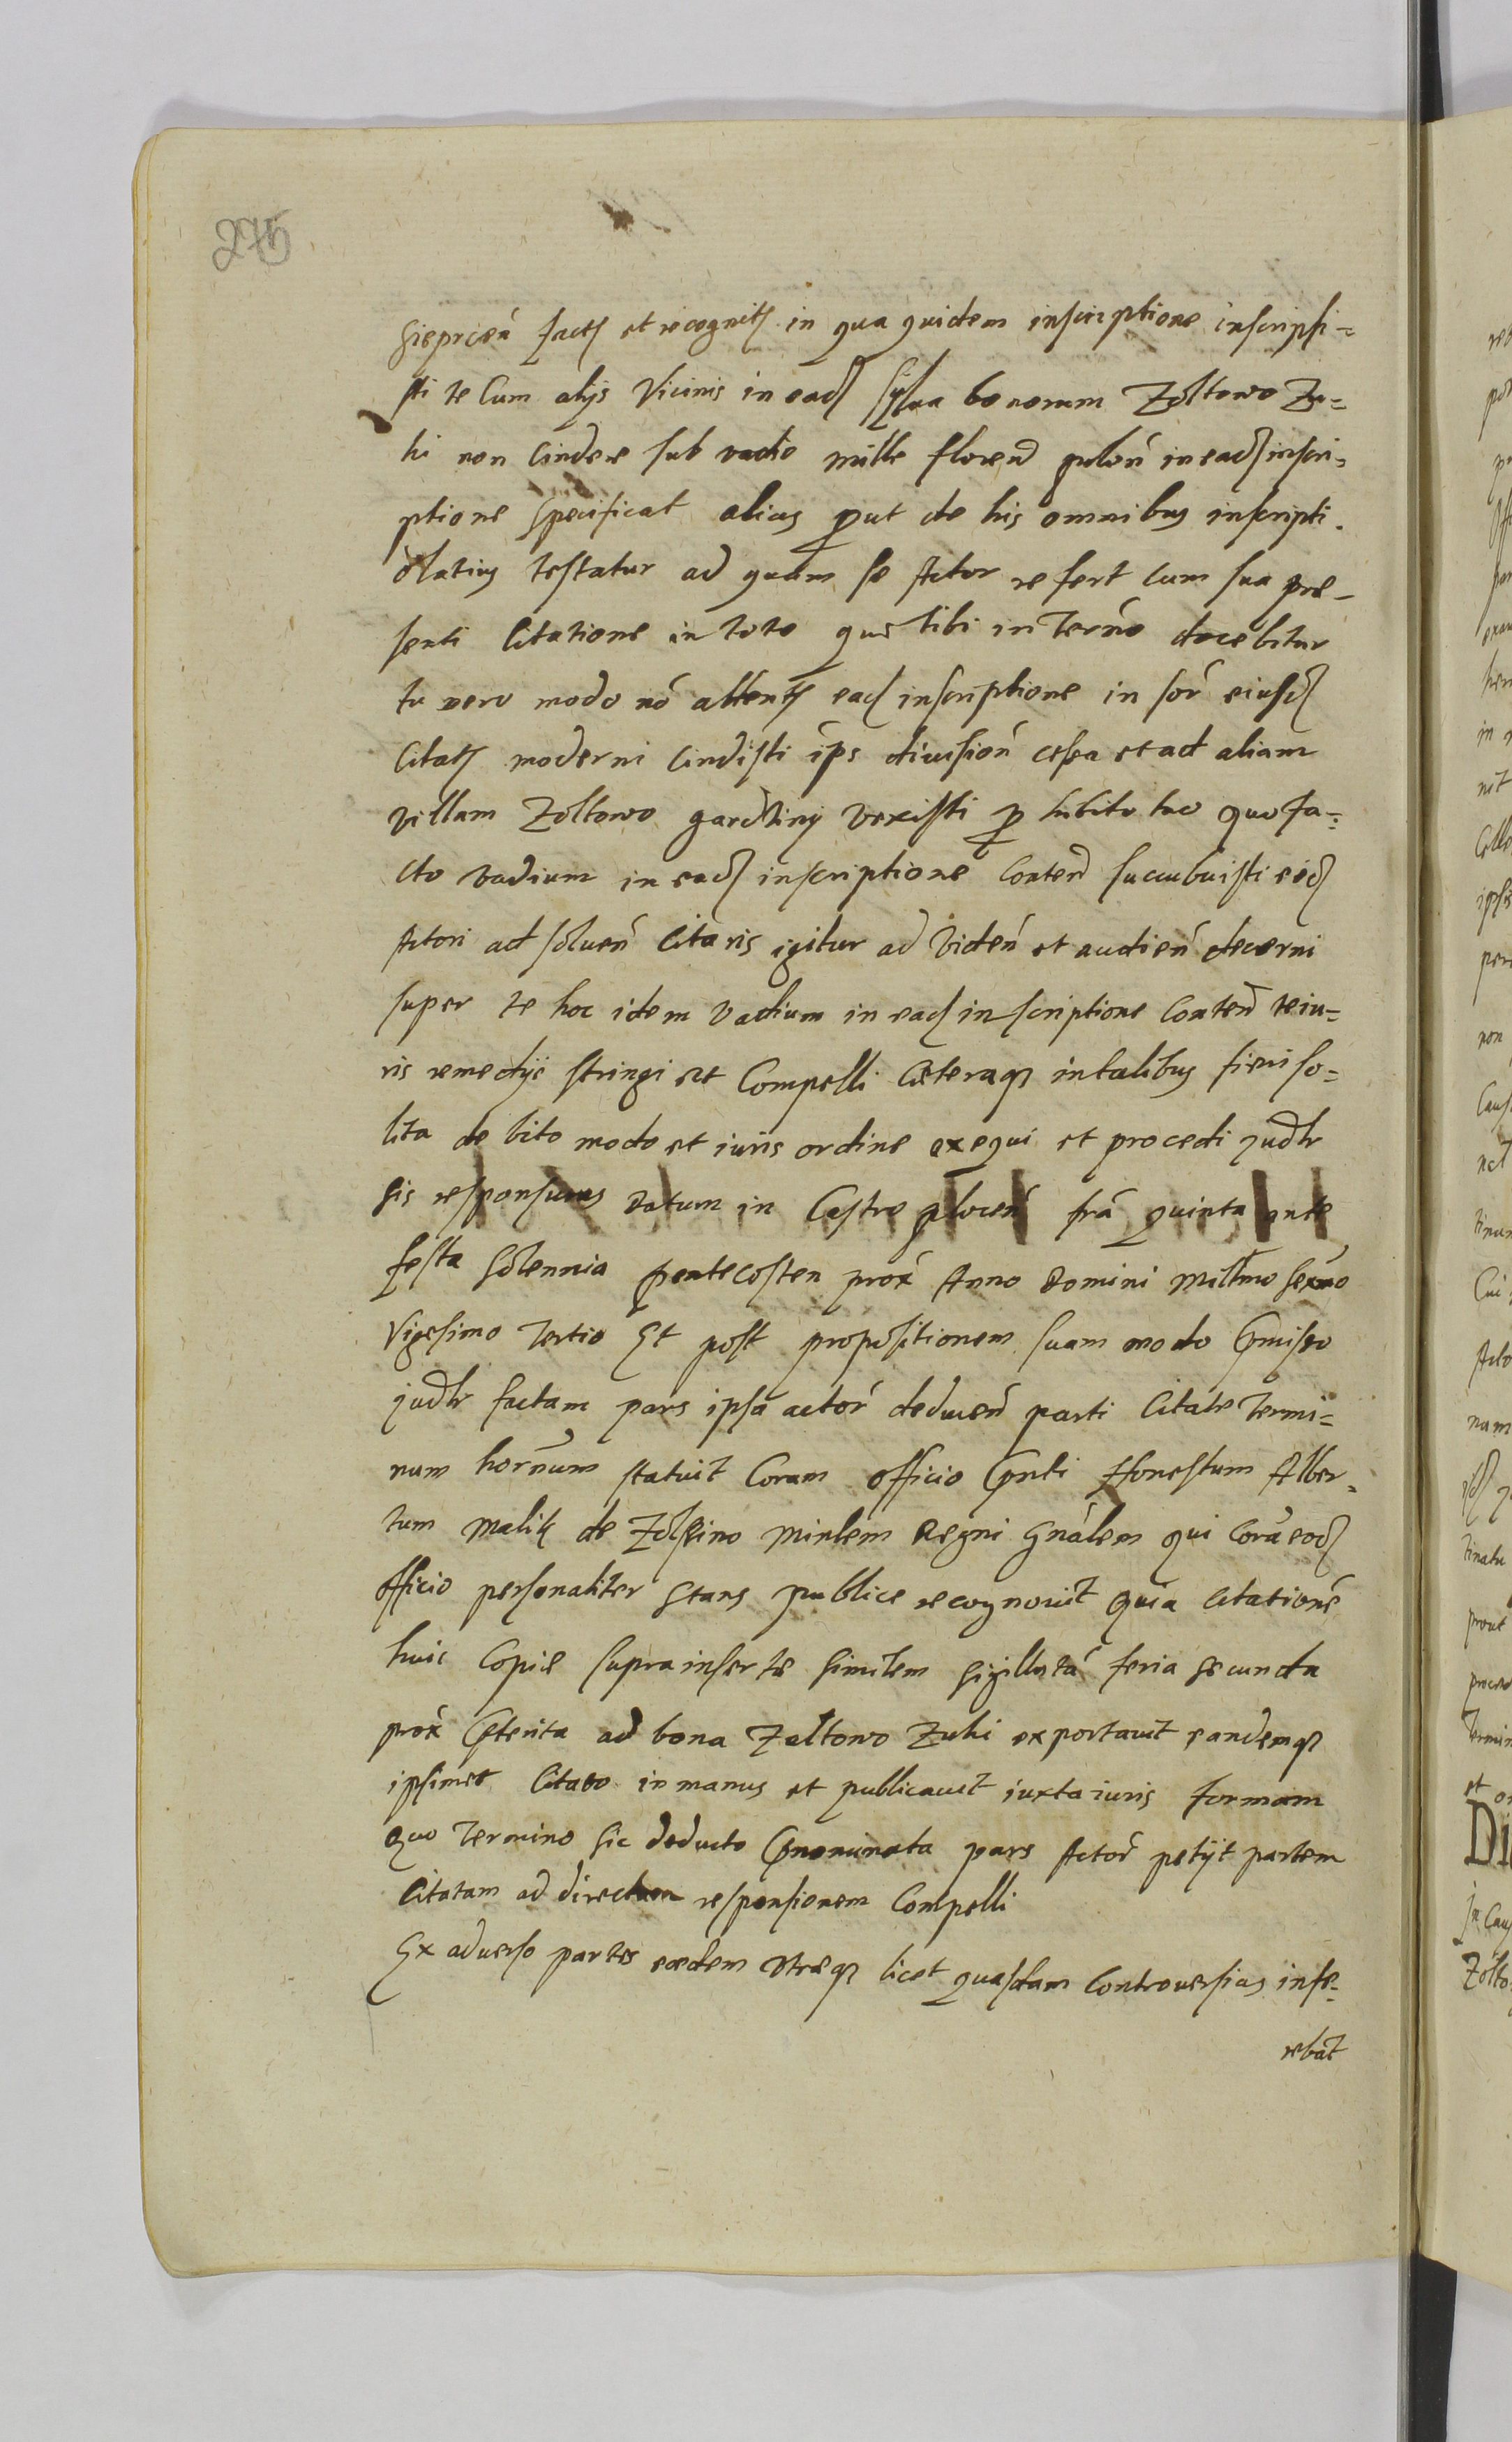 275
Sieprcen̄ facts et recognits in qua quidem inscriptione inscripsi=
sti te Cum alijs Vicinis in ead Sylua bonorum Zoltowo Zu=
ki non Cindere sub vadio mille floren polon̄ in ead inscri=
ptione specificat alias prout de his omnibus inscripti.
o latius testatur ad quam se Actor refert cum sua pre=
senti Citatione in toto que tibi in Termo docebitur
tu vero modo nō attents ead inscriptione in sor eiusd
Citats moderni Cindisti ips diuision̄ et ad aliam
villam Zoltowo vexisti p libitu tuo quo fa=
cto vadium in ead inscriptione Conten succubuisti eid
Actori ad soluen̄ Citaris igitur ad Viden̄ et audien̄ decerni
super te hoc idem Vadium in ead inscriptione Conten te iu=
ris remedijs stringi et Compelli Cæteraq in talibus fieri so=
lita debito modo et iuris ordine exequi et procedi judlr
sis responsurus Datum in Castro plocen̄ fra quinta ante
festa Solennia pentecosten prox Anno Domini Millmo Sexmo
Vigesimo Tertio Et post propositionem suam modo pmisso
judlr factam pars ipsa actor̄ deducen̄ parti Citatæ Termi=
num hornum statuit Coram officio pnti Honestum Alber=
tum Malik de Minlem Regni Gnalem qui Corā eod
officio personaliter stans publice recognouit Quia Citationē
huic Copiæ suprainsertæ similem sigillatā feria secunda
prox pterita ad bona Zoltowo Zuki exportauit eandemq
ipsimet Citato in manus et publicauit iuxta iuris formam
Quo Termino sic deducto pnominata pars Actor̄ petijt partem
Citatam ad directam responsionem Compelli
Ex aduerso partes eædem Vtræq licet quasdam Controuersias infe=
rebāt